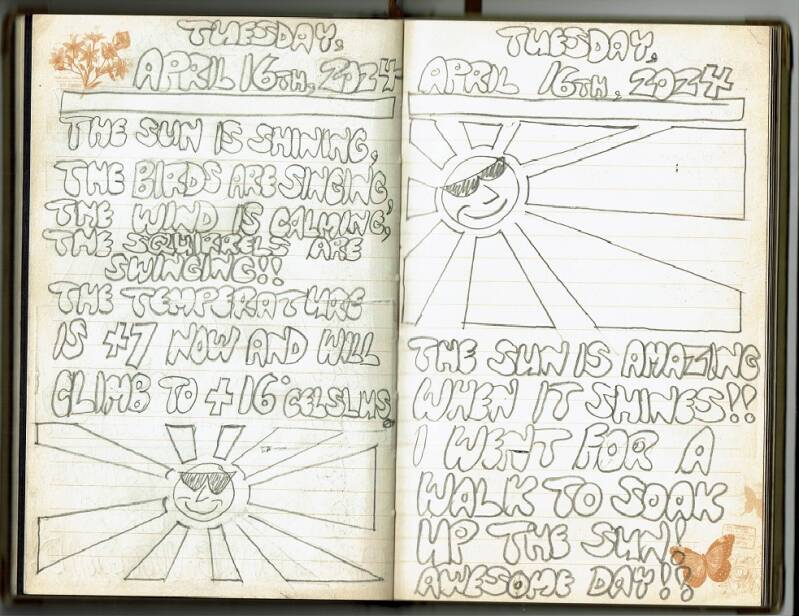 TUESDAY,
APRIL 16TH, 2024
THE SUN IS SHINING,
THE BIRDS ARE SINGING,
THE WIND IS CALMING,
THE SQUIRRELS ARE
SWINGING!!
THE TEMPERATURE
IS +7 NOW AND WILL
CLIMB TO +16° CELSIUS.
TUESDAY,
APRIL 16TH, 2024
THE SUN IS AMAZING
WHEN IT SHINES!!
I WENT FOR A
WALK TO SOAK
UP THE SUN!
AWESOME DAY!!